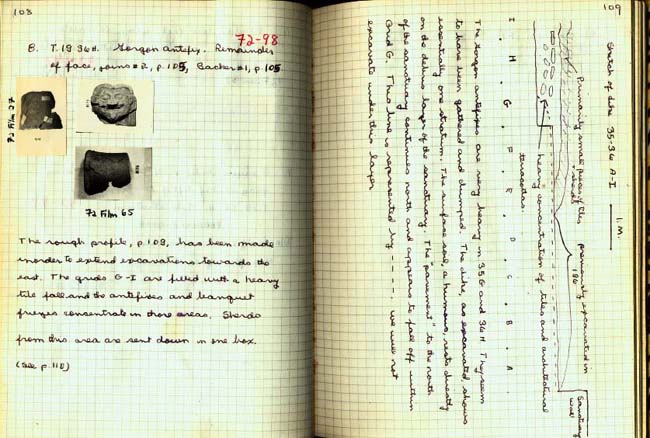 108
72-98
8. T. 19 36H. Gorgon Antefix. Remainder
of face, joins #2, p. 105, Backer #1, p. 105
72 Film 27
72 Film 65
The rough profile, p. 109, has been made
inorder to extend excavations towards the
east. The grids G-I are filled with a heavy
tile fall and the antefixes and banquet
friezes concentrate in those areas. Sherds
from this area are sent down in one box.
(See p. 110)
109
Sketch of dike 35-36 A-I
1 M.
Primarily small pieces of tiles
sherds
previously excavated in
1961
heavy concentration of tiles and architectural
terracottas.
Sanctuary
wall
I . H . G . F . E . D . C . B . A .
The Gorgon antefixes are very heavy in 35G and 36H. They seem
to have been gathered and dumped. The dike, as excavated, shows
essentially one stratum. The surface soil, a humus, rests directly
on the debris layer of the sanctuary. The "pavement" to the north
of the sanctuary continues north and appears to fall off within
Grid G. This line is represented by - - - - . We will not
excavate under this layer